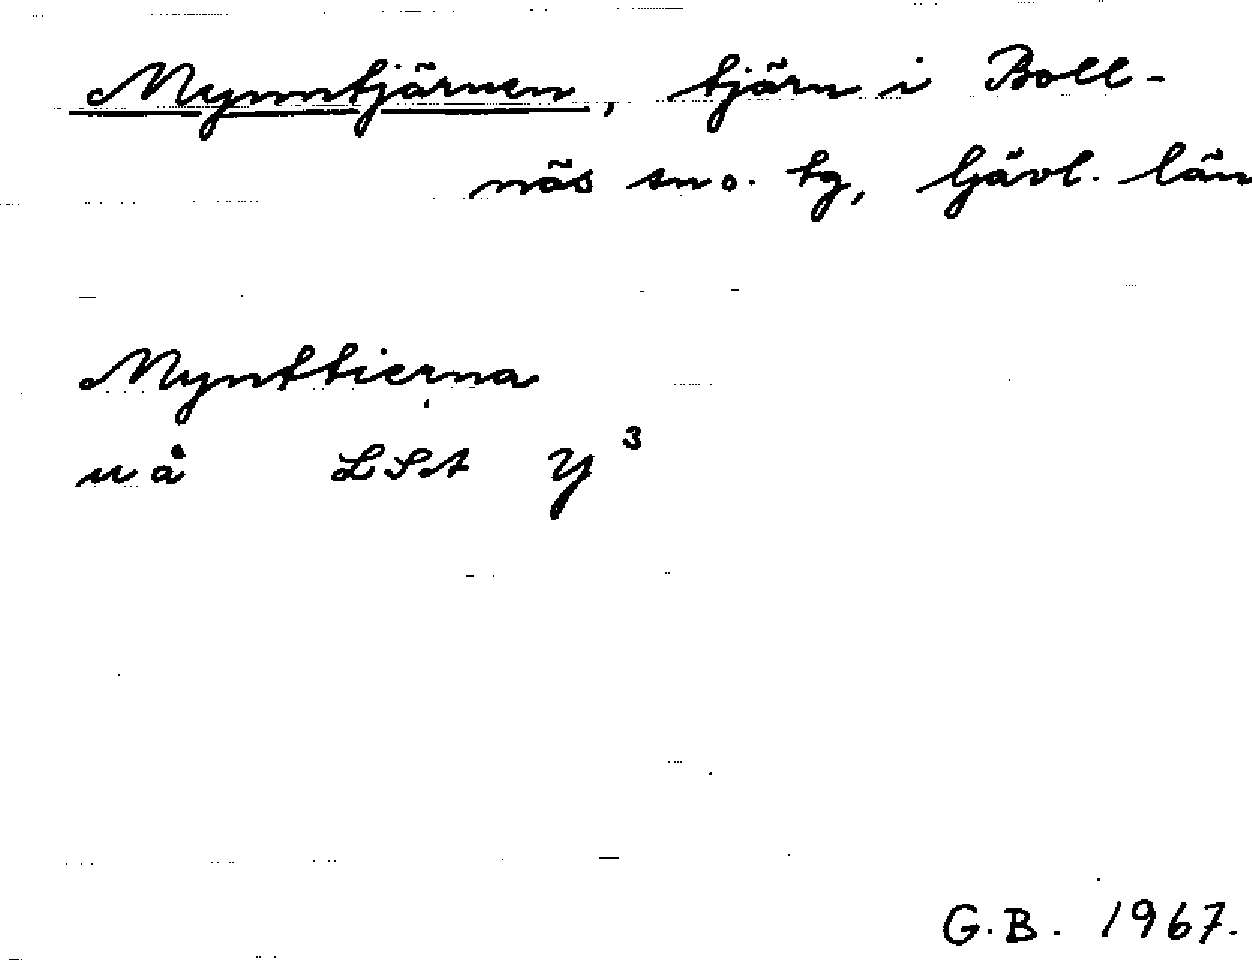 Mynntjärnen, tjärn i Boll-
näs sn o. tg, Gävl. län
Mynttierna
uå LSA Y³
G.B. 1967.